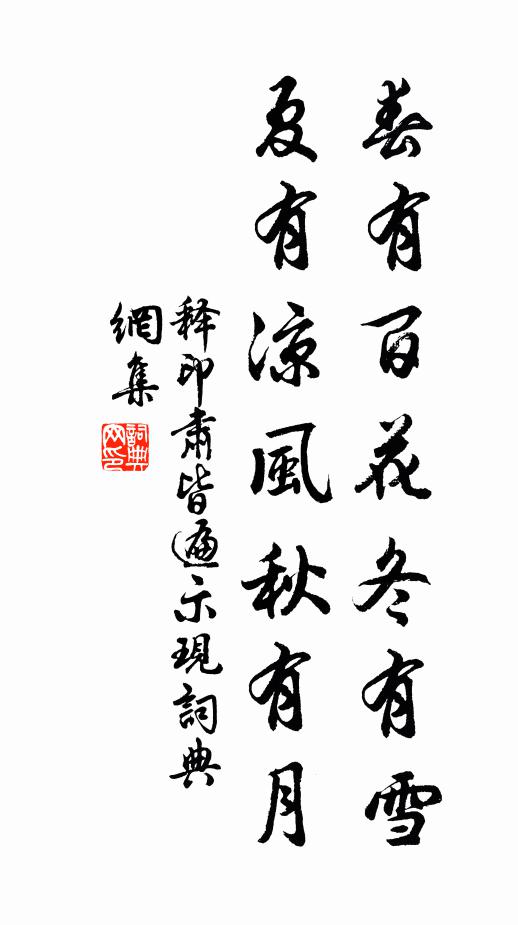 春有百花冬有雪
夏有涼風秋有月
释印肅皆遍示現詞典
網集
詞典網印